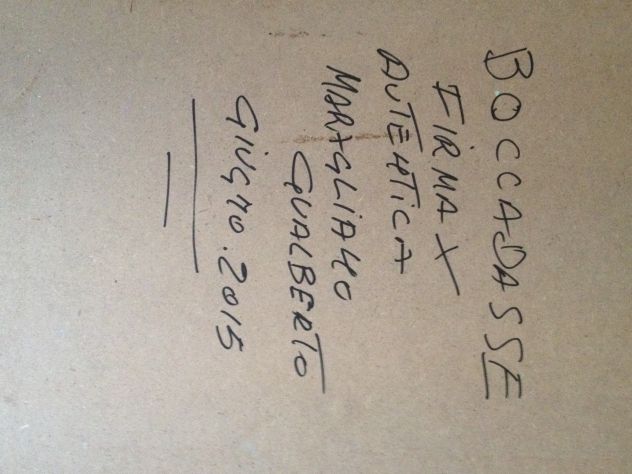 BOCCADASSE
FIRMA X
AUTENTICA
MARAGLIANO
GUALBERTO
GIUGNO.2015